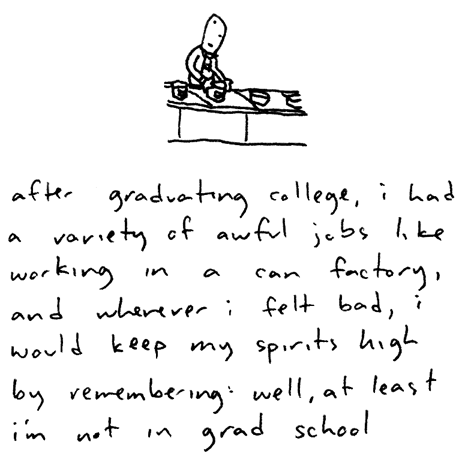 after graduating college, i had
a variety of awful jobs like
working in a can factory,
and whenever i felt bad, i
would keep my spirits high
by remembering: well, at least
i'm not in grad school